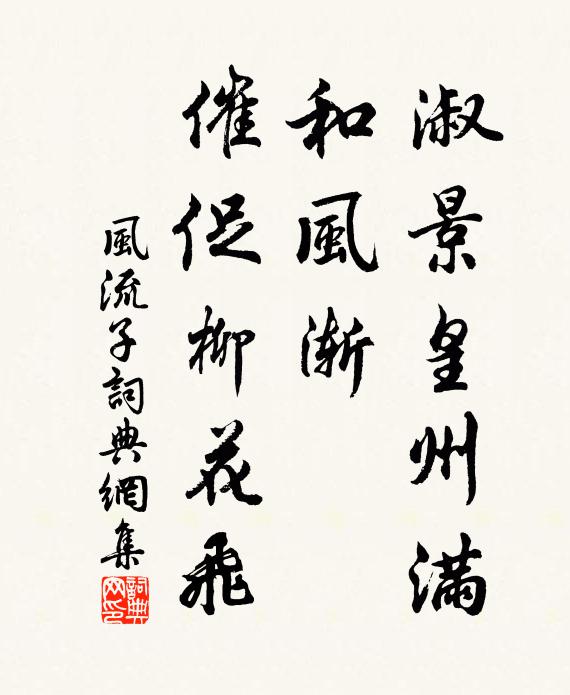 淑景皇州滿
和風漸
催促柳花飛
風流子詞典網集
詞典網印